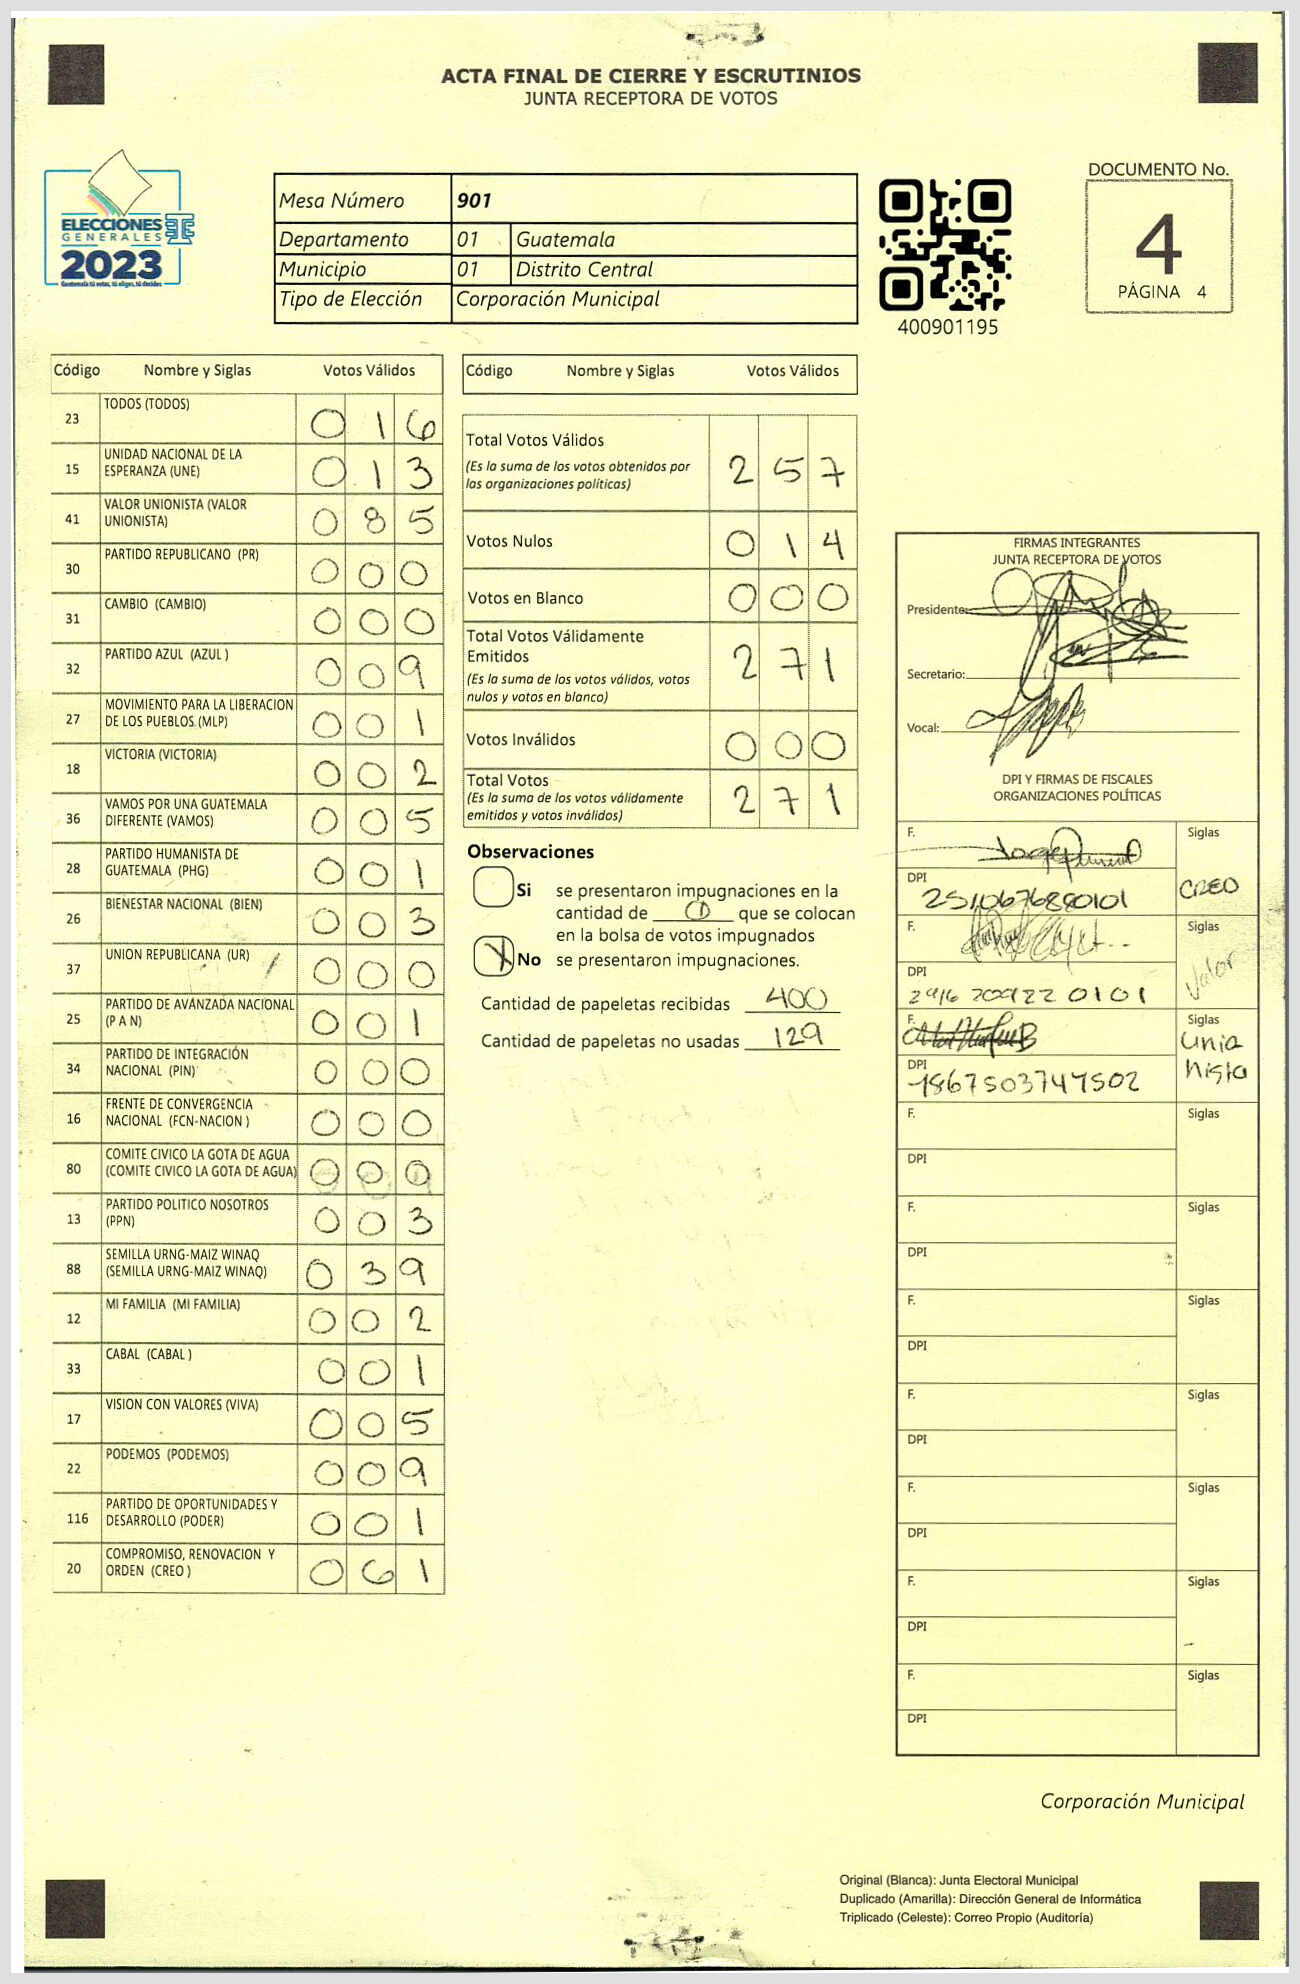 ACTA FINAL DE CIERRE Y ESCRUTINIOS
JUNTA RECEPTORA DE VOTOS
ELECCIONES
GENERALES
2023
Guatemala tú votas, tú eliges, tú decides
Mesa Número 901
Departamento 01 Guatemala
Municipio 01 Distrito Central
Tipo de Elección Corporación Municipal
400901195
DOCUMENTO No.
4
PÁGINA 4
Código Nombre y Siglas Votos Válidos
23 TODOS (TODOS) 0 1 6
15 UNIDAD NACIONAL DE LA
ESPERANZA (UNE) 0 1 3
41 VALOR UNIONISTA (VALOR
UNIONISTA) 0 8 5
30 PARTIDO REPUBLICANO (PR) 0 0 0
31 CAMBIO (CAMBIO) 0 0 0
32 PARTIDO AZUL (AZUL ) 0 0 9
27 MOVIMIENTO PARA LA LIBERACION
DE LOS PUEBLOS (MLP) 0 0 1
18 VICTORIA (VICTORIA) 0 0 2
36 VAMOS POR UNA GUATEMALA
DIFERENTE (VAMOS) 0 0 5
28 PARTIDO HUMANISTA DE
GUATEMALA (PHG) 0 0 1
26 BIENESTAR NACIONAL (BIEN) 0 0 3
37 UNION REPUBLICANA (UR) 0 0 0
25 PARTIDO DE AVANZADA NACIONAL
(P A N) 0 0 1
34 PARTIDO DE INTEGRACIÓN
NACIONAL (PIN) 0 0 0
16 FRENTE DE CONVERGENCIA
NACIONAL (FCN-NACION ) 0 0 0
80 COMITE CIVICO LA GOTA DE AGUA
(COMITE CIVICO LA GOTA DE AGUA) 0 0 0
13 PARTIDO POLITICO NOSOTROS
(PPN) 0 0 3
88 SEMILLA URNG-MAIZ WINAQ
(SEMILLA URNG-MAIZ WINAQ) 0 3 9
12 MI FAMILIA (MI FAMILIA) 0 0 2
33 CABAL (CABAL ) 0 0 1
17 VISION CON VALORES (VIVA) 0 0 5
22 PODEMOS (PODEMOS) 0 0 9
116 PARTIDO DE OPORTUNIDADES Y
DESARROLLO (PODER) 0 0 1
20 COMPROMISO, RENOVACION Y
ORDEN (CREO ) 0 6 1
Código Nombre y Siglas Votos Válidos
Total Votos Válidos
(Es la suma de los votos obtenidos por
las organizaciones políticas) 2 5 7
Votos Nulos 0 1 4
Votos en Blanco 0 0 0
Total Votos Válidamente
Emitidos
(Es la suma de los votos válidos, votos
nulos y votos en blanco) 2 7 1
Votos Inválidos 0 0 0
Total Votos
(Es la suma de los votos válidamente
emitidos y votos inválidos) 2 7 1
Observaciones
Si se presentaron impugnaciones en la
cantidad de 0 que se colocan
en la bolsa de votos impugnados
X No se presentaron impugnaciones.
Cantidad de papeletas recibidas 400
Cantidad de papeletas no usadas 129
FIRMAS INTEGRANTES
JUNTA RECEPTORA DE VOTOS
Presidente:
Secretario:
Vocal:
DPI Y FIRMAS DE FISCALES
ORGANIZACIONES POLÍTICAS
F. Siglas
DPI CREO
2510676880101
F. Siglas
DPI Valor
2916 209220101
F. Siglas
Unio
DPI nista
1867503747502
F. Siglas
DPI
F. Siglas
DPI
F. Siglas
DPI
F. Siglas
DPI
F. Siglas
DPI
F. Siglas
DPI
F. Siglas
DPI
Corporación Municipal
Original (Blanca): Junta Electoral Municipal
Duplicado (Amarilla): Dirección General de Informática
Triplicado (Celeste): Correo Propio (Auditoría)